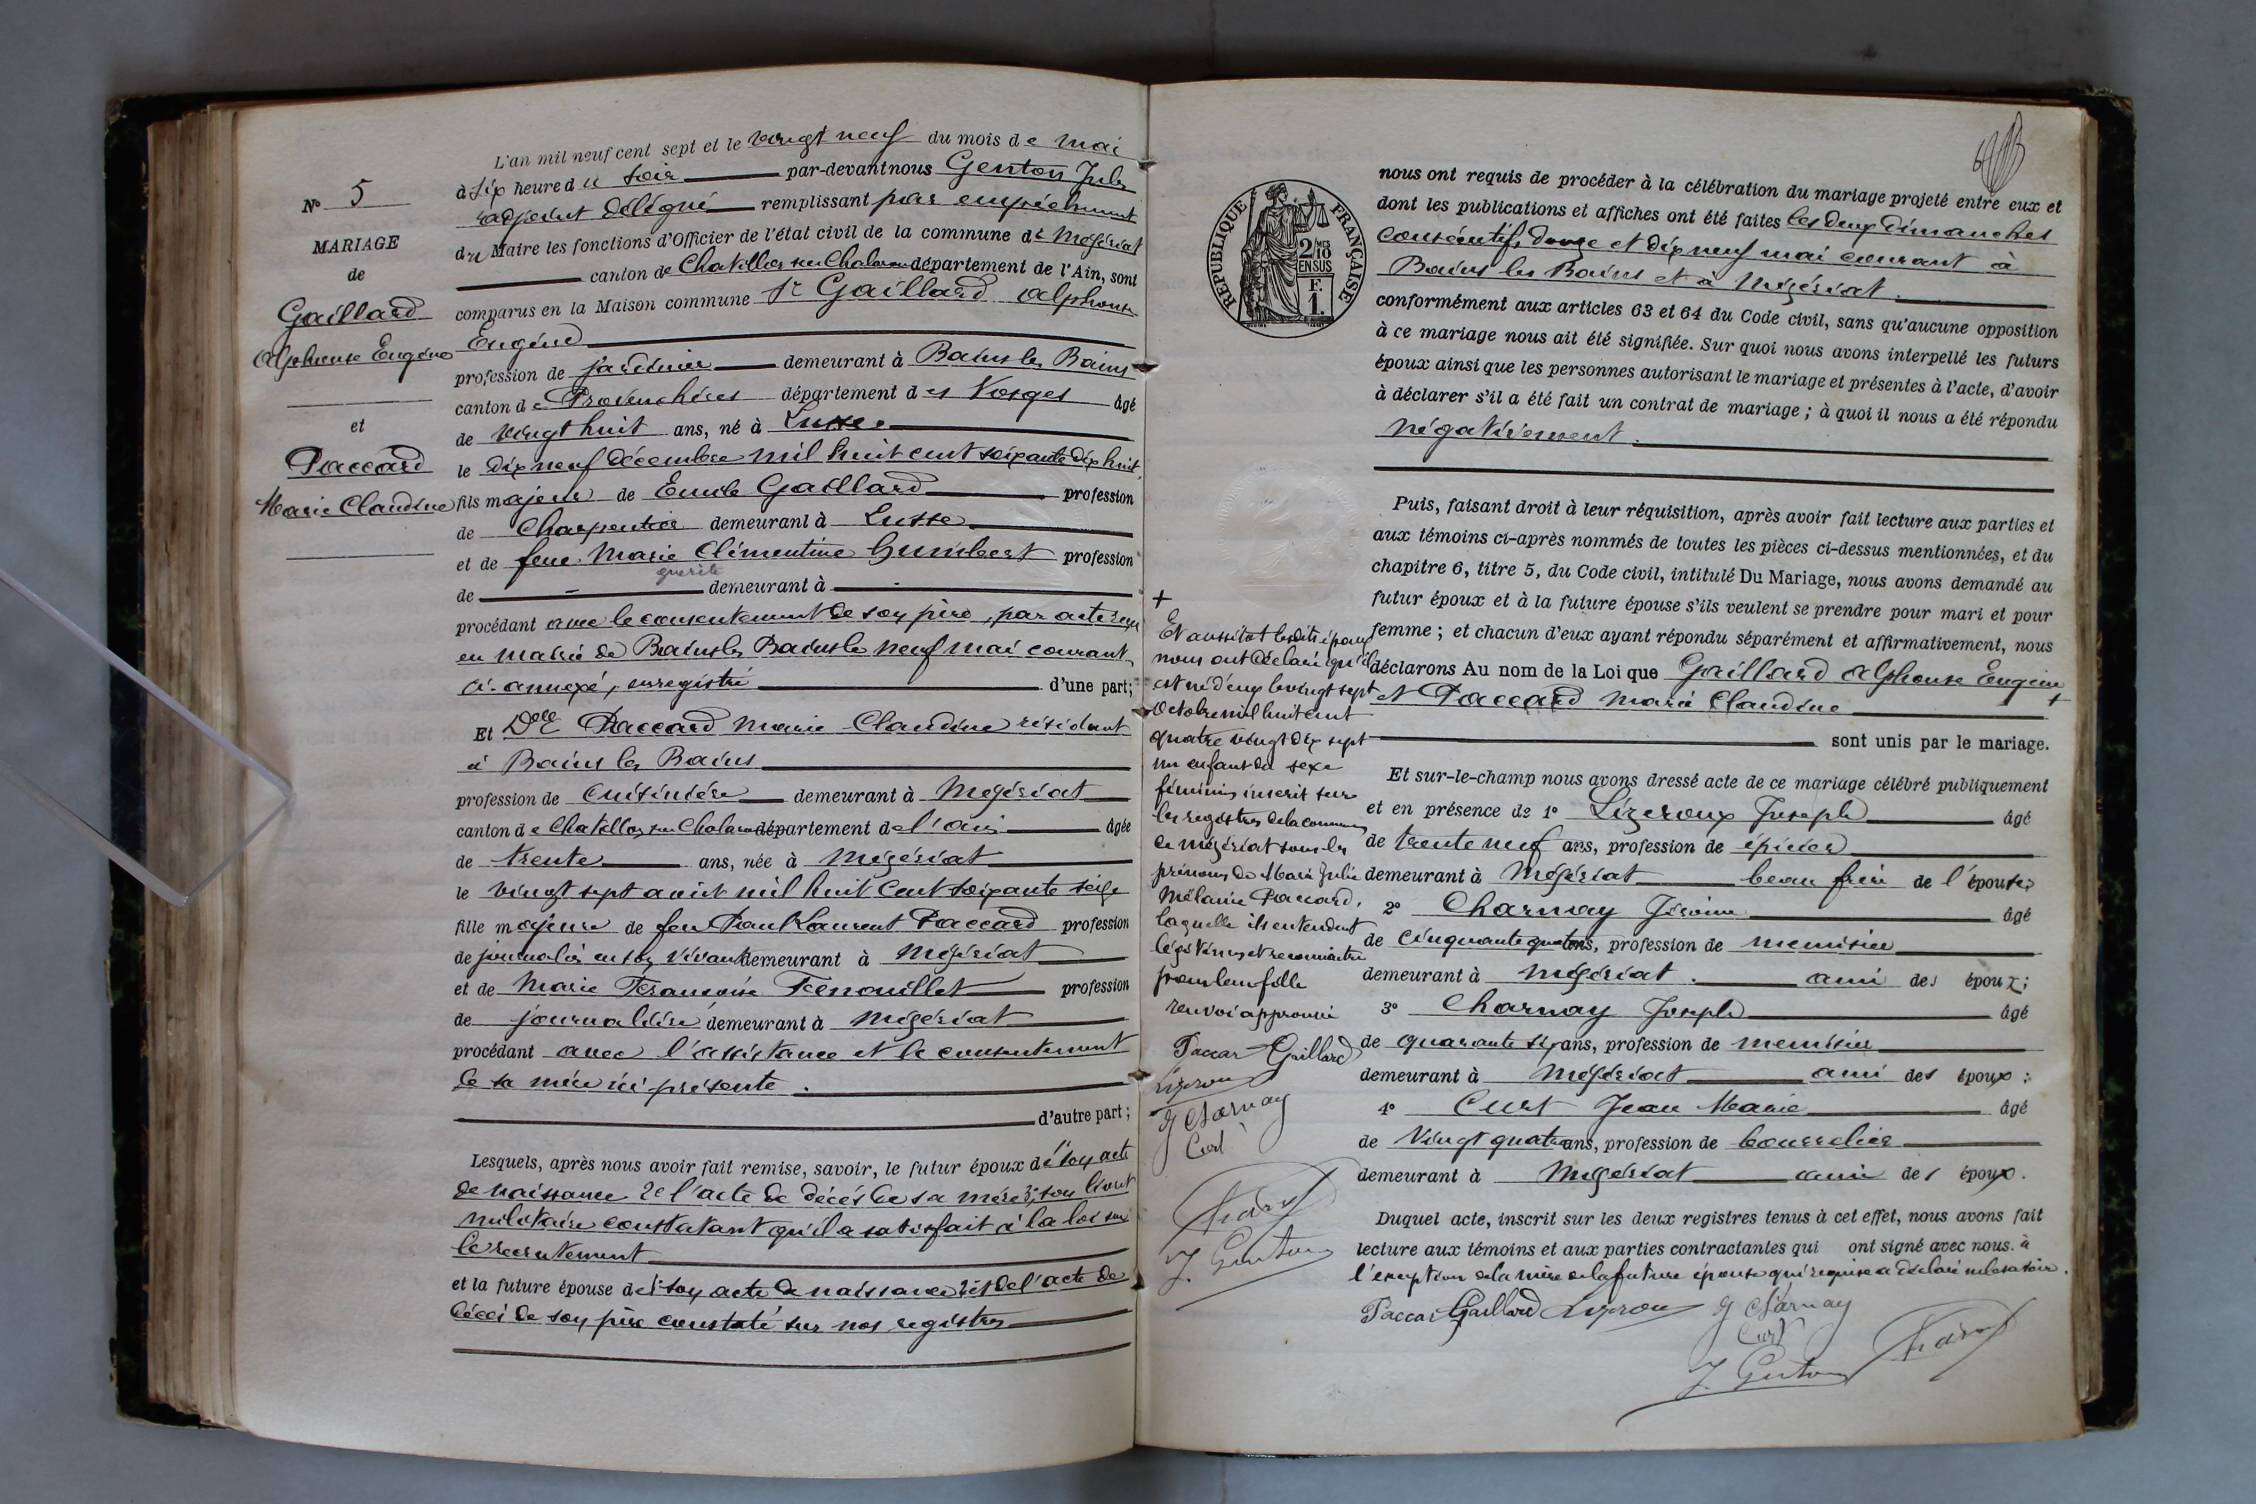 N° 5
MARIAGE
de
Gaillard
Alphonse Eugène
et
Paccard
Marie Claudine
L'an mil neuf cent sept et le vingt neuf du mois de mai
à six heure du soir par-devant nous Genton Jules
adjoint délégué remplissant par empêchement
du Maire les fonctions d'Officier de l'état civil de la commune de Mézériat
canton de Chatillon sur Chalaronne département de l'Ain, sont
comparus en la Maison commune Sr Gaillard Alphonse
Eugène
profession de jardinier demeurant à Bains les Bains
canton de Provenchères département des Vosges âgé
de vingt huit ans, né à Lusse
le dix neuf décembre mil huit cent soixante dix huit
fils majeur de Emile Gaillard profession
de Charpentier demeurant à Lusse
et de feue Marie Clémentine Humbert profession
de demeurant à
procédant avec le consentement de son père, par acte reçu
en mairie de Bains les Bains le neuf mai courant,
ci-annexé, enregistré d'une part;
Et Delle Paccard Marie Claudine résidant
à Bains les Bains
profession de Cuisinière demeurant à Mézériat
canton de Chatillon sur Chalaronne département de l'Ain âgée
de trente ans, née à Mézériat
le vingt sept août mil huit cent soixante seize
fille majeure de feu Jean Laurent Paccard profession
de journalier en son vivant demeurant à Mézériat
et de Marie Françoise Fenouillet profession
de journalière demeurant à Mézériat
procédant avec l'assistance et le consentement
de sa mère ici présente.
d'autre part;
Lesquels, après nous avoir fait remise, savoir, le futur époux de 1° son acte
de naissance 2° l'acte de décès de sa mère 3° son livret
militaire constatant qu'il a satisfait à la loi sur
le recrutement
et la future épouse de 1° son acte de naissance 2° et de l'acte de
décès de son père constaté sur nos registres
RÉPUBLIQUE FRANÇAISE
2/10
EN SUS
F.
1.
nous ont requis de procéder à la célébration du mariage projeté entre eux et
dont les publications et affiches ont été faites les deux dimanches
consécutifs, douze et dix neuf mai courant à
Bains les Bains et à Mézériat.
conformément aux articles 63 et 64 du Code civil, sans qu'aucune opposition
à ce mariage nous ait été signifiée. Sur quoi nous avons interpellé les futurs
époux ainsi que les personnes autorisant le mariage et présentes à l'acte, d'avoir
à déclarer s'il a été fait un contrat de mariage; à quoi il nous a été répondu
négativement.
Puis, faisant droit à leur réquisition, après avoir fait lecture aux parties et
aux témoins ci-après nommés de toutes les pièces ci-dessus mentionnées, et du
chapitre 6, titre 5, du Code civil, intitulé Du Mariage, nous avons demandé au
futur époux et à la future épouse s'ils veulent se prendre pour mari et pour
femme; et chacun d'eux ayant répondu séparément et affirmativement, nous
déclarons Au nom de la Loi que Gaillard Alphonse Eugène
et Paccard Marie Claudine +
sont unis par le mariage.
Et sur-le-champ nous avons dressé acte de ce mariage célébré publiquement
et en présence de 1° Lizeroux Joseph âgé
de trente neuf ans, profession de épicier
demeurant à Mézériat beau frère de l'épouse;
2° Charnay Jérôme âgé
de cinquante quatre ans, profession de menuisier
demeurant à Mézériat. ami des époux;
3° Charnay Joseph âgé
de quarante six ans, profession de menuisier
demeurant à Mézériat ami des époux;
4° Curt Jean Marie âgé
de vingt quatre ans, profession de bourrelier
demeurant à Mézériat ami des époux.
Duquel acte, inscrit sur les deux registres tenus à cet effet, nous avons fait
lecture aux témoins et aux parties contractantes qui ont signé avec nous. à
l'exception de la mère de la future épouse qui requise a déclaré ne le savoir.
Paccar Gaillard Lizerou J Charnay
Curt
J. Genton
+
Et aussitôt lesdits époux
nous ont déclaré qu'il
est né d'eux le vingt sept
Octobre mil huit cent
quatre vingt dix sept
un enfant du sexe
féminin inscrit sur
les registres de la commune
de Mézériat sous les
prénoms de Marie Julie
Mélanie Paccard,
laquelle ils entendent
légitimer et reconnaître
pour leur fille
renvoi approuvé
Paccar Gaillard
Lizerou
J Charnay
Curt
J. Genton